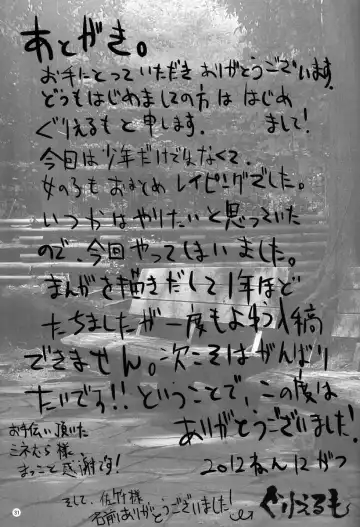 あとがき。
お手にとっていただき ありがとうございます。
どうもはじめましての方は はじめ
まして!
ぐりえるもと申します。
今回は少年だけでなくて、
女の子もおまとめ レイピングでした。
いつかはやりたいと思っていた
ので、今回やってしまいました。
まんがを描きだして1年ほど
たちましたが 一度もよゆう入稿
できません。次こそはがんばり
たいです!! ということで、この度は
ありがとうございました!
お手伝い頂いた
ミネむら様、
まっこと感謝です!
2012ねん12がつ
そして、佐竹様
名前ありがとうございました!
ぐりえるも
31